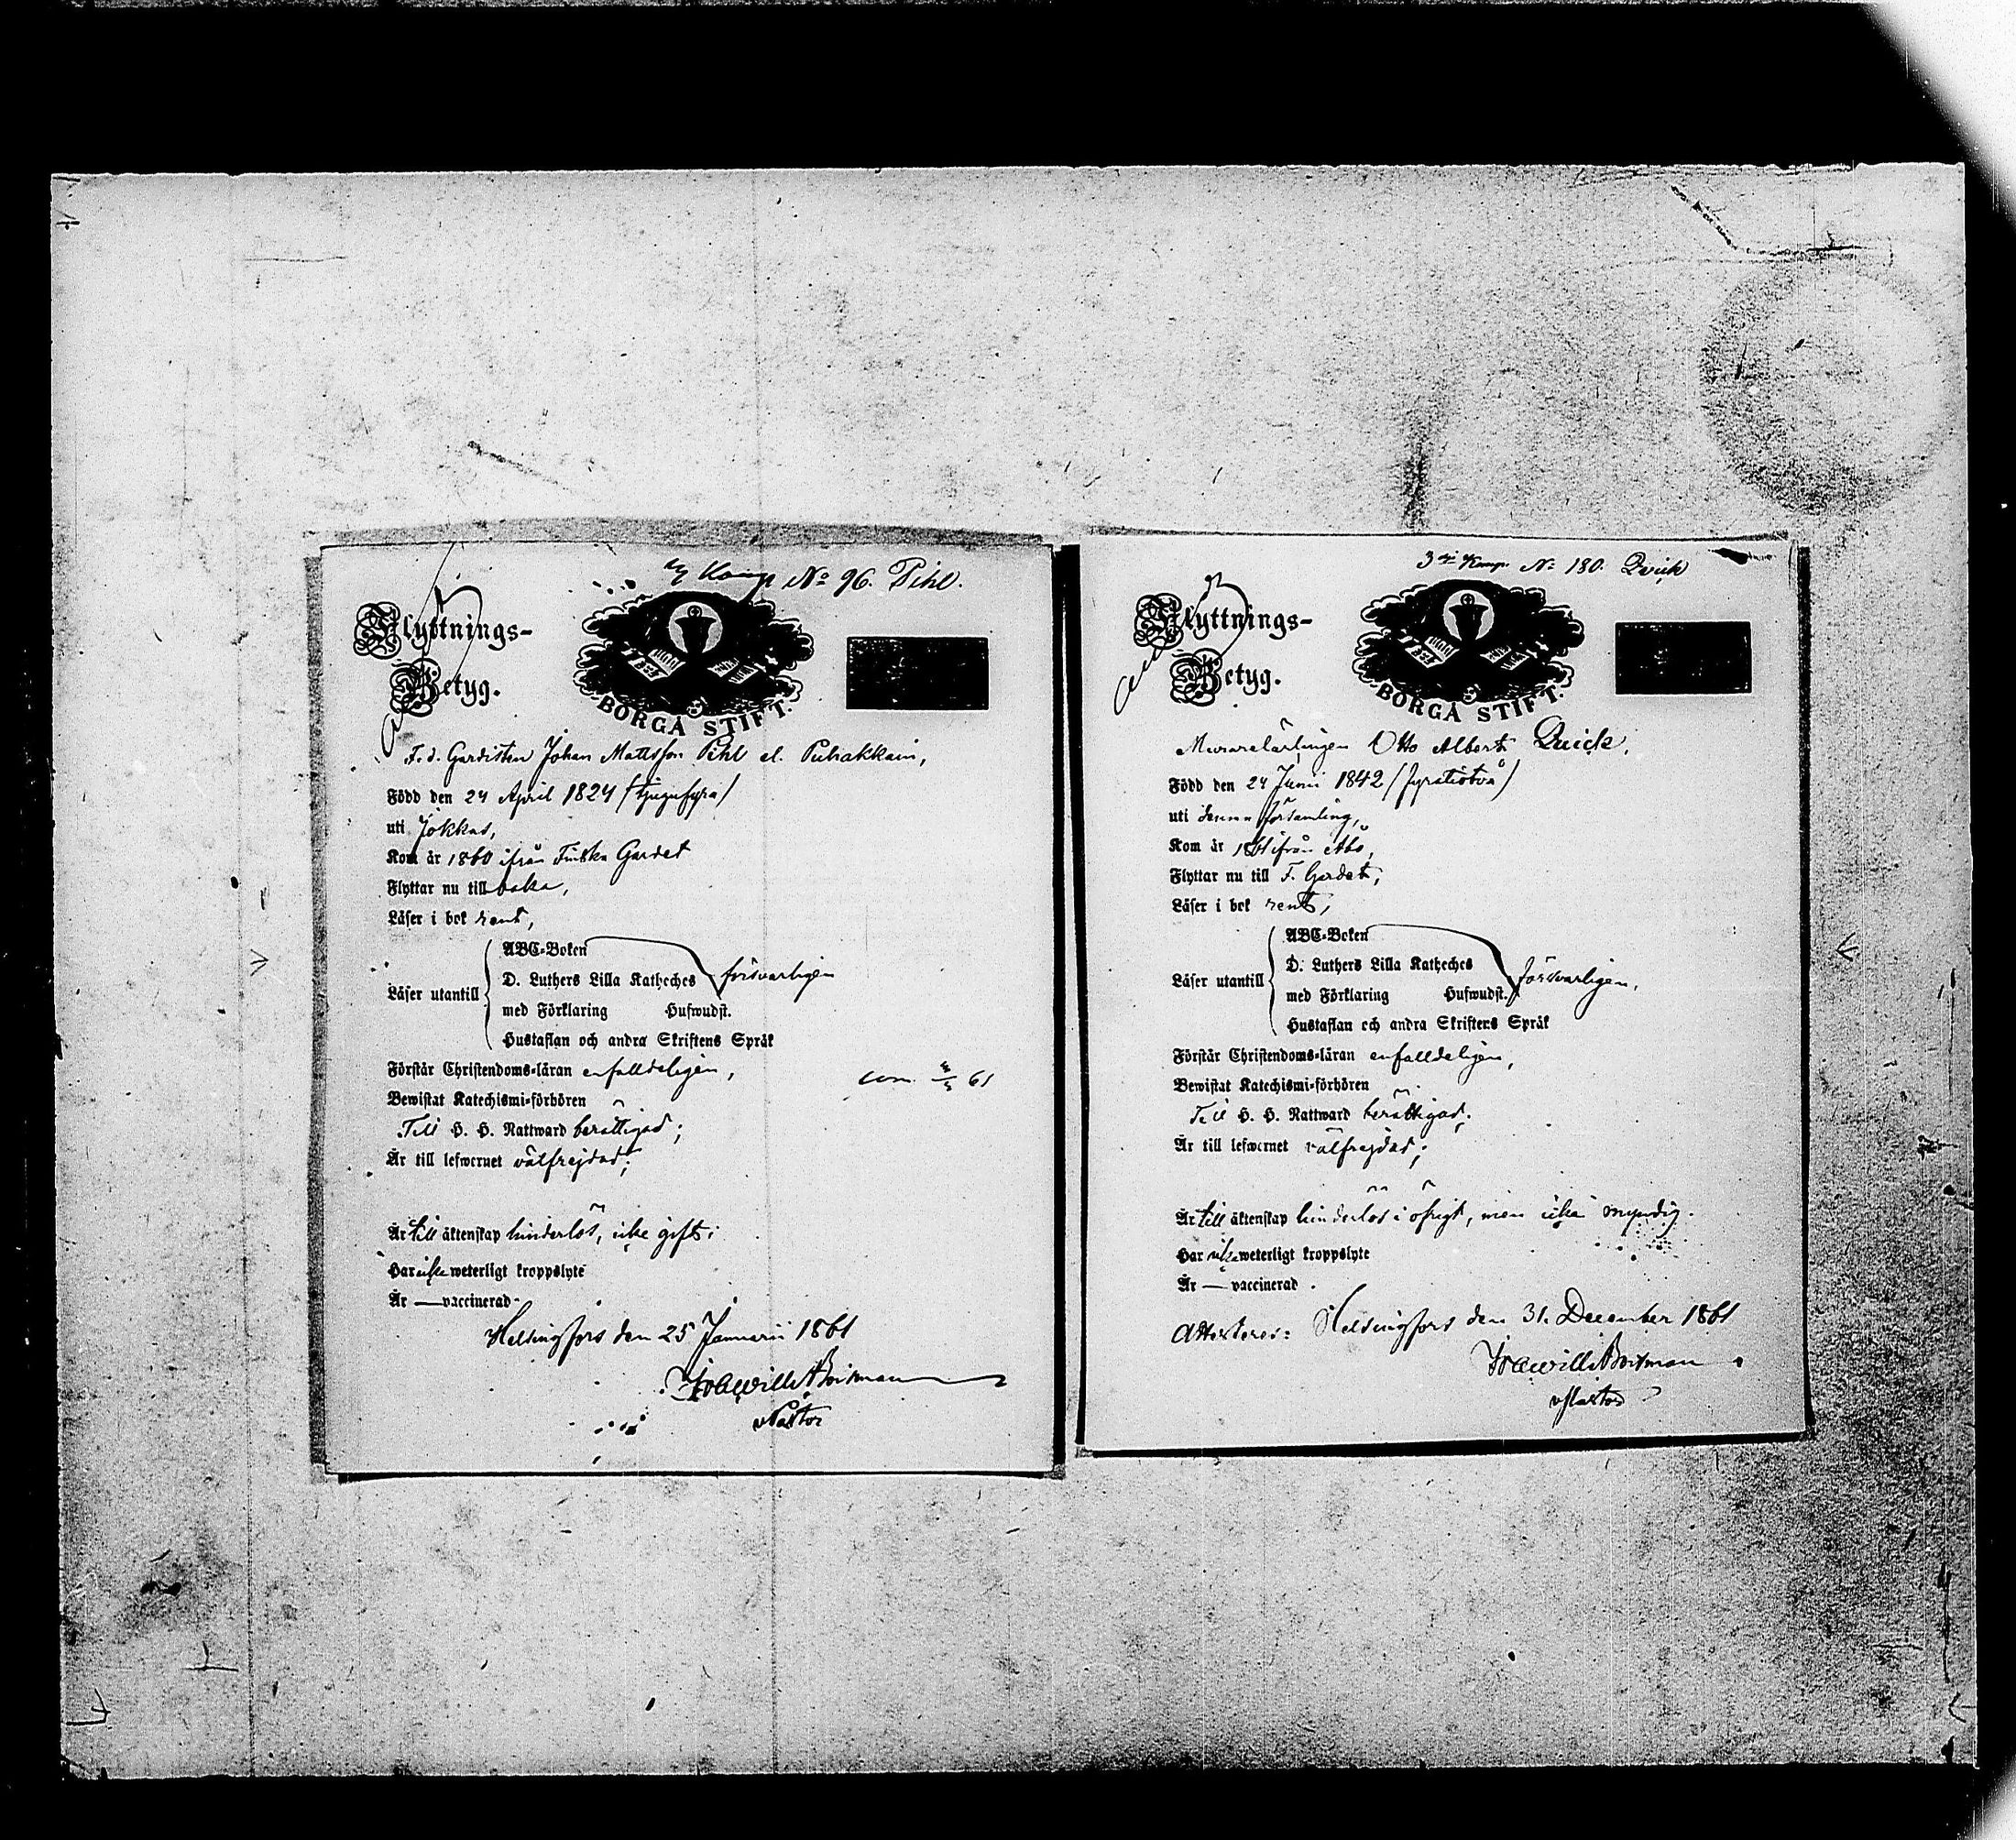 Komp No 96. Pihl.
Flyttnings-
Betyg.
BORGÅ STIFT.
F.d. Gardisten Johan Mattsson Pihl el. Puhakkain,
Född den 24 April 1824 (tjugufyra)
uti Jokkas,
Kom år 1860 ifrån Finska Gardet
Flyttar nu till baka,
Läser i bok rent,
ABC-Boken
D. Luthers Lilla Katheches försvarligen
Läser utantill
med Förklaring Hufwudst.
Hustaflan och andra Skriftens Språk
Förstår Christendoms-läran enfalldeligen,
61
Bewistat Katechismi-förhören
Till H. H. Nattward berättigad;
Är till lefwernet välfrejdad;
Är till äktenskap hinderlös, icke gift;
Har icke weterligt kroppslyte
Är — vaccinerad
Helsingfors den 25 Januarii 1861
Pastor
3dje Komp. No 180. Qvick
Flyttnings-
Betyg.
BORGÅ STIFT.
Murarelärlingen Otto Albert Quick,
Född den 24 Junii 1842 (fyratiotvå)
uti denna församling,
Kom år 1861 ifrån Åbo,
Flyttar nu till F. Gardet,
Läser i bok rent,
ABC-Boken
D. Luthers Lilla Katheches försvarligen,
Läser utantill
med Förklaring Hufwudst.
Hustaflan och andra Skriftens Språk
Förstår Christendoms-läran enfalldeligen,
Bewistat Katechismi-förhören
Till H. H. Nattward berättigad;
Är till lefwernet välfrejdad;
Är till äktenskap hinderlös i öfrigt, men icke myndig.
Har icke weterligt kroppslyte
Är — vaccinerad
Attesterar: Helsingfors den 31. December 1861
Pastor